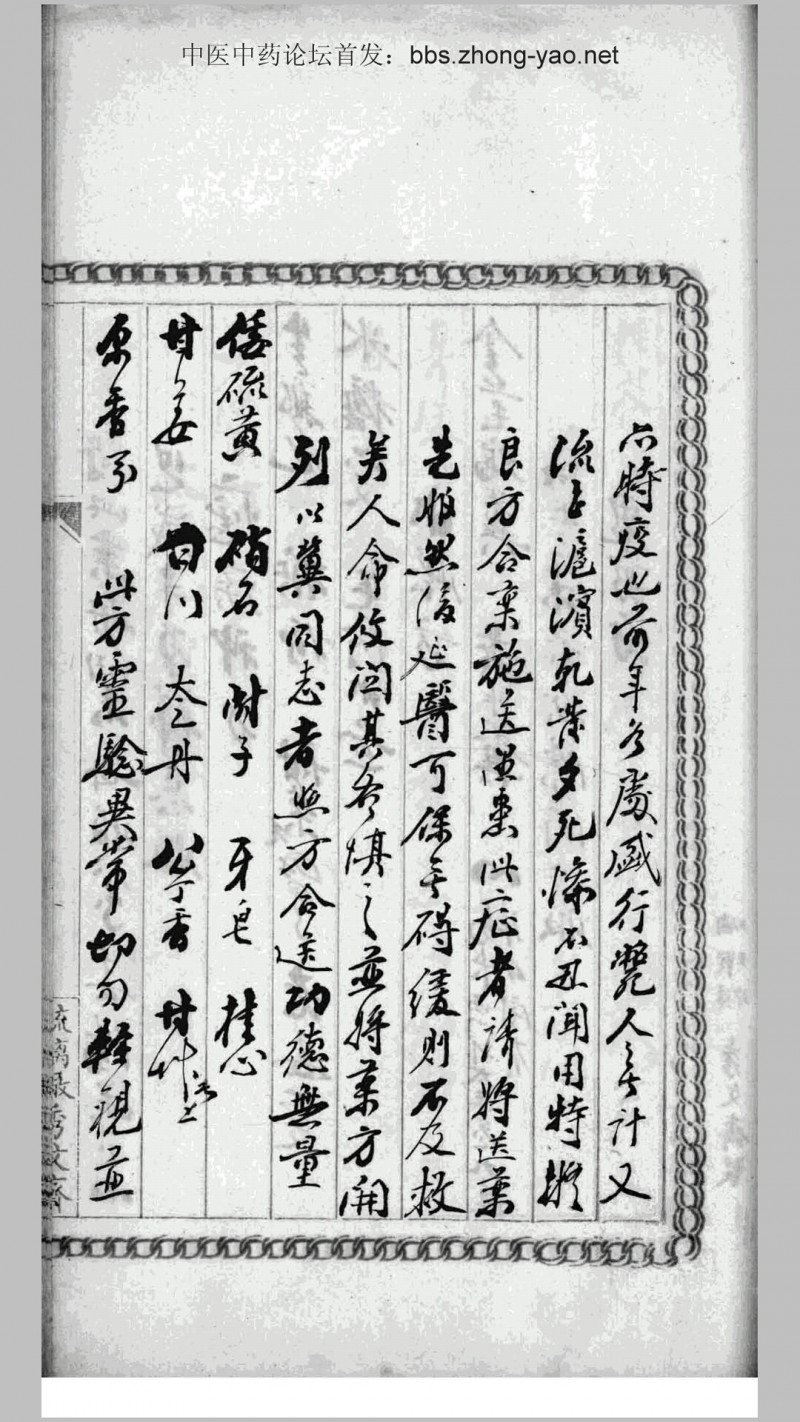 中医中药论坛首发：bbs.zhong-yao.net
亦時疫也前年各處盛行斃人無計又
流至滬濱乾啙夕死慘不忍聞用特擬
良方合藥施送遇患此症者請將送藥
先服然後延醫可保無碍緩則不及救
矣人命攸関其各慎之並將藥方開
列以冀同志者照方合送功德無量
倭硫黄 硝石 附子 牙皂 桂心
甘姜 甘川 太乙丹 公丁香 甘
原香 此方靈驗異常切勿輕視並
琉璃厰秀文齋